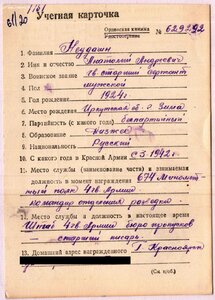 Учетная карточка
Орденская книжка № 629292
1. Фамилия
2. Имя и отчество Анатолий Андреевич
3. Воинское звание гв старший сержант
4. Пол мужской
5. Год рождения 1924г.
6. Место рождения Иркутская об. г. Зима
7. Партийность (с какого года) беспартийный
8. Образование низшее
9. Национальность Русский
10. С какого года в Красной Армии с 1942г.
11. Место службы (наименование части) и занимаемая
должность в момент награждения 674
полк 4гв Армии
командир отделения разведки
12. Место службы и должность в настоящее время
Штаб 4гв Армии бюро пропусков
старший писарь
13. Домашний адрес награжденного г. Красноярск
(См. н/об.)